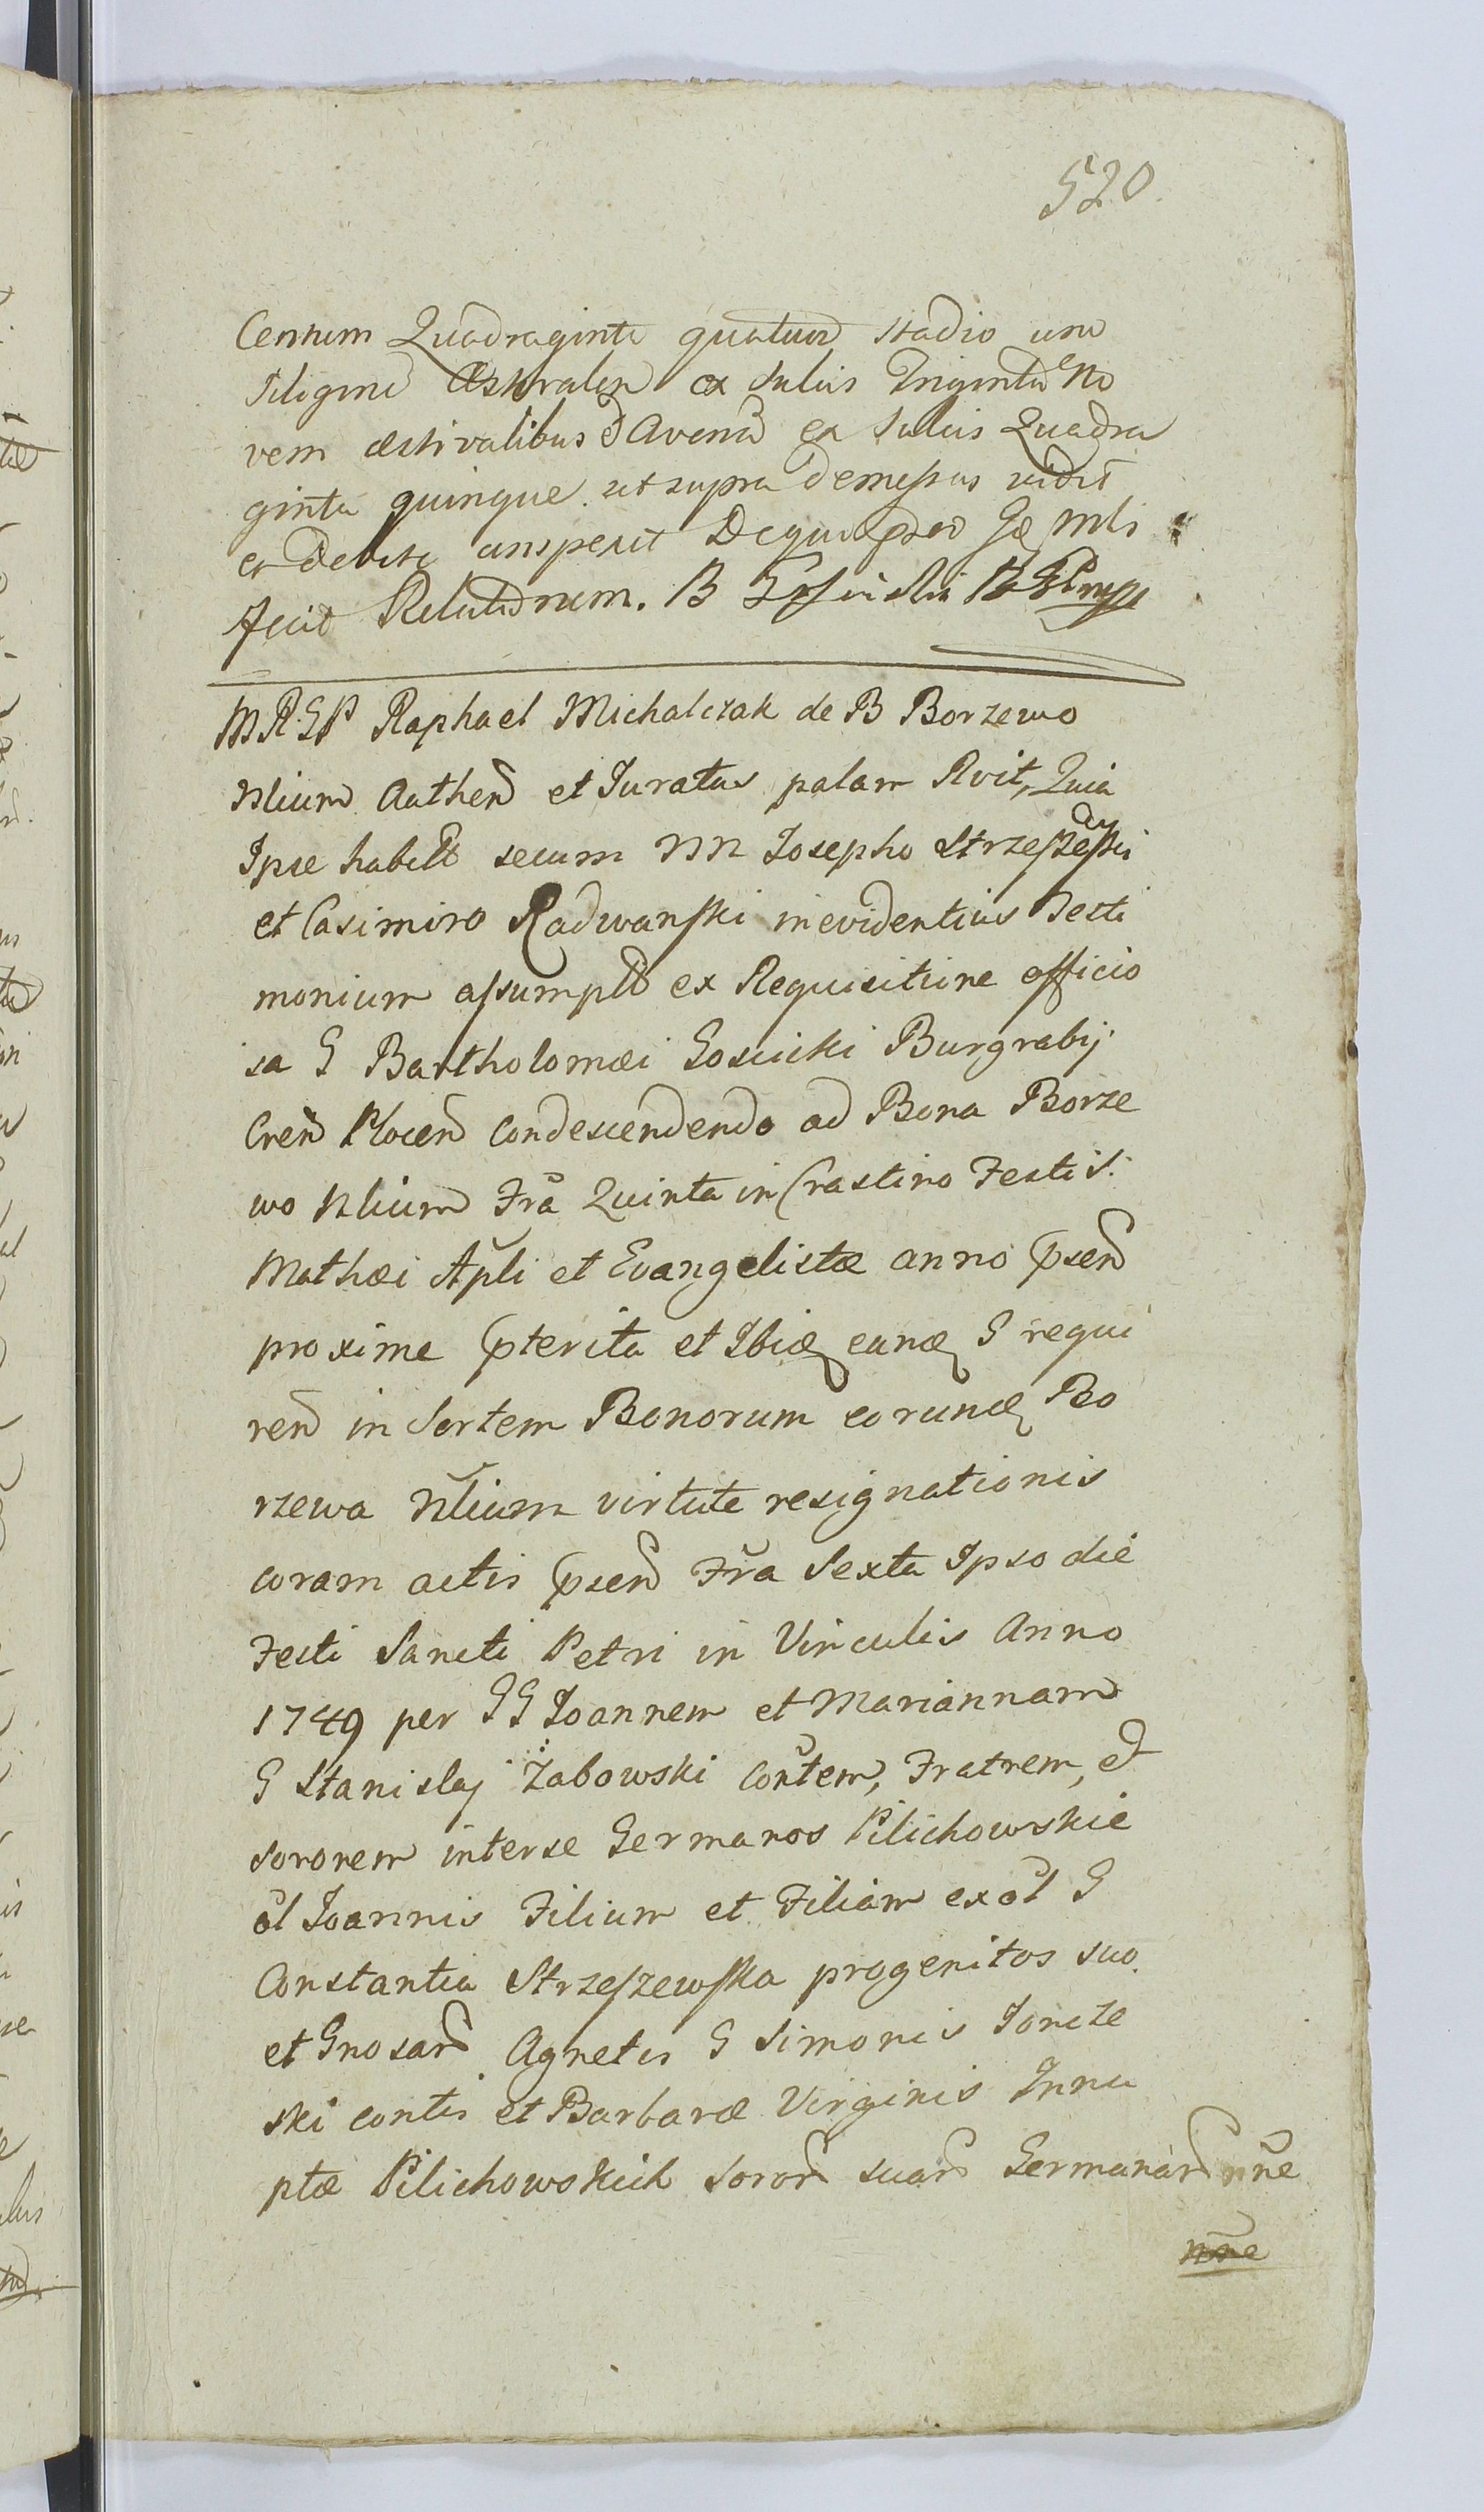 520
Centum Quadraginta quatuor stadio uno
siligine ex sulcis Triginta No
vem æstivalibus Avena ex sulcis Quadra
ginta quinque ut supra demessas vidit
et debite conspexit De quo
fecit Relationem.
MRGP Raphael Michalczak de B Borzewo
Nlium Authen et Juratus palam Rvit, Quia
Ipse habitt secum NN Josepho Strzeszewski
et Casimiro Radwanski in evidentius Testi
monium assumptt ex Requisitione officio
sa G Bartholomæi Goscicki Burgrabij
Cren Plocen Condescendendo ad Bona Borze
wo Nlium Fra Quinta in Crastino Festi S:
Mathæi Apli et Evangelistæ anno psen
proxime pterita et Ibiq eunq G requi
ren in Sortem Bonorum eorunq Bo
rzewa Nlium virtute resignationis
coram actis psen Fra Sexta Ipso die
Festi Sancti Petri in Vinculis Anno
1749 per GG Joannem et Mariannam
G Stanislaj Żabowski Contem, Fratrem, et
Sororem interse Germanos Pilichowskie
ol Joannis Filium et Filiam ex ol G
Constantia Strzeszewska progenitos suo
et Gnosar Agnetis G Simonis Joncze
ski contis et Barbaræ Virginis Innu
ptæ Pilichowskich Soror suar Germanar nne
nne